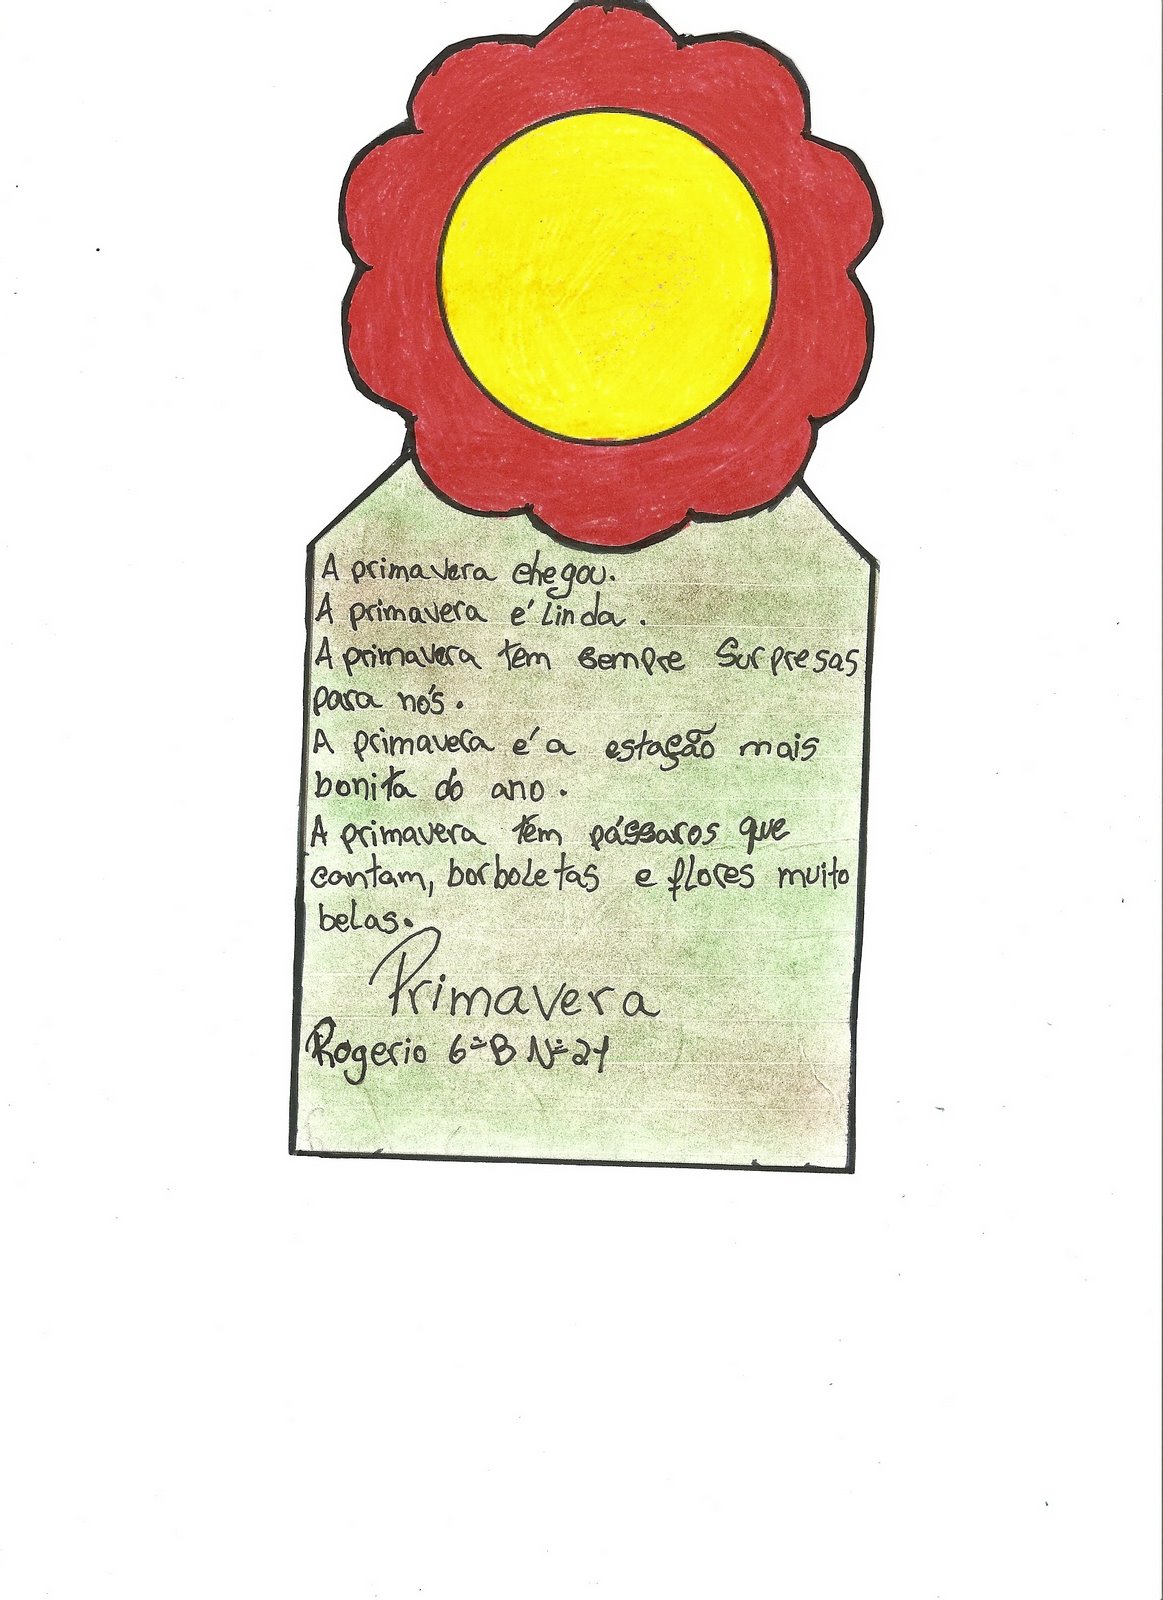 A primavera chegou.
A primavera é linda.
A primavera tem sempre surpresas
para nós.
A primavera é a estação mais
bonita do ano.
A primavera tem pássaros que
cantam, borboletas e flores muito
belas.
Primavera
Rogerio 6ªB Nº 21